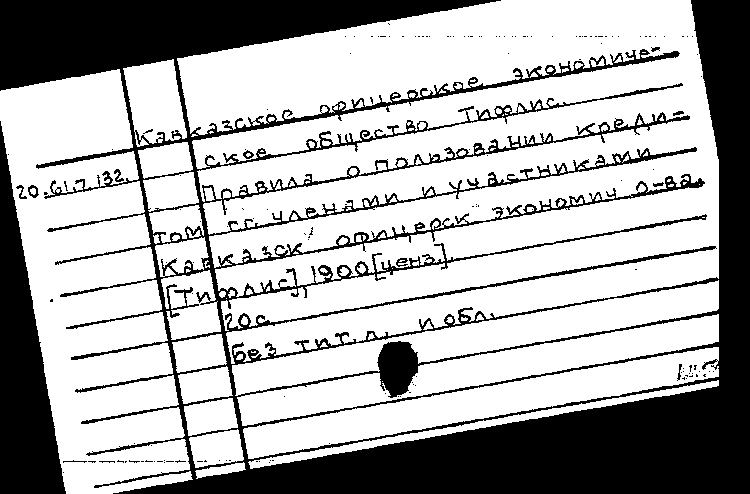 Кавказское офицерское экономиче-
ское общество Тифлис.
20.61.7.132.
Правила о пользовании креди-
том гг. членами и участниками
Кавказск офицерск экономич о-ва.
[Тифлис], 1900 [ценз.].
20 с.
Без тит. л. и обл.